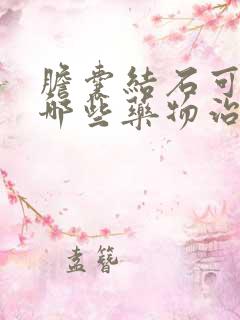 膽囊結石可
哪些藥物治
盍簪